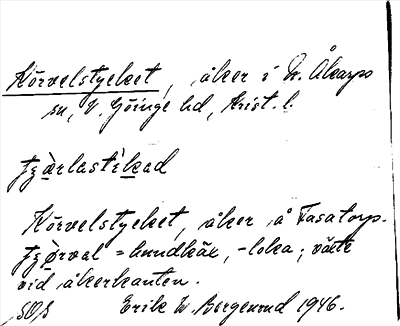 Körvelstycket, åker i N. Åkarps
sn, V. Göinge hd, Krist. l.
tjærlastikad
Körvelstycket, åker å Tasatorp.
tjørval = hundkäx, -loka; växte
vid åkerkanten.
Erik W. Borgenrud 1946.